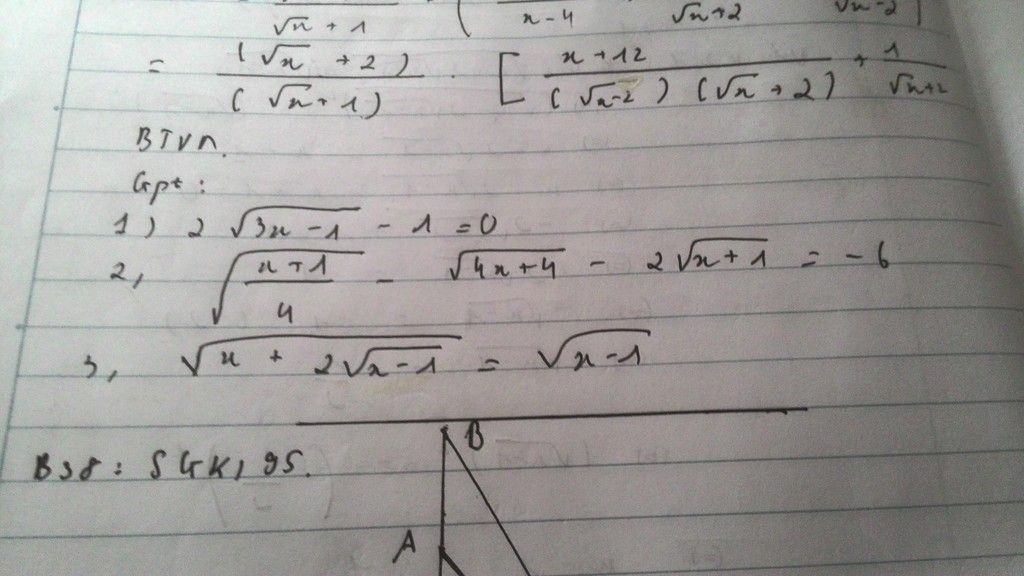 √x + 1 ( x-4 √x+2 √x-2 ]
= (√x + 2) / (√x + 1) . [ x + 12 / (√x-2) (√x + 2) + 1 / √x+2
BTVN.
Gpt :
1) 2 √3x-1 - 1 = 0
2, √(x+1)/4 - √4x+4 - 2√x+1 = -6
3, √x + 2√x-1 = √x-1
B
B38 : SGK, 95.
A